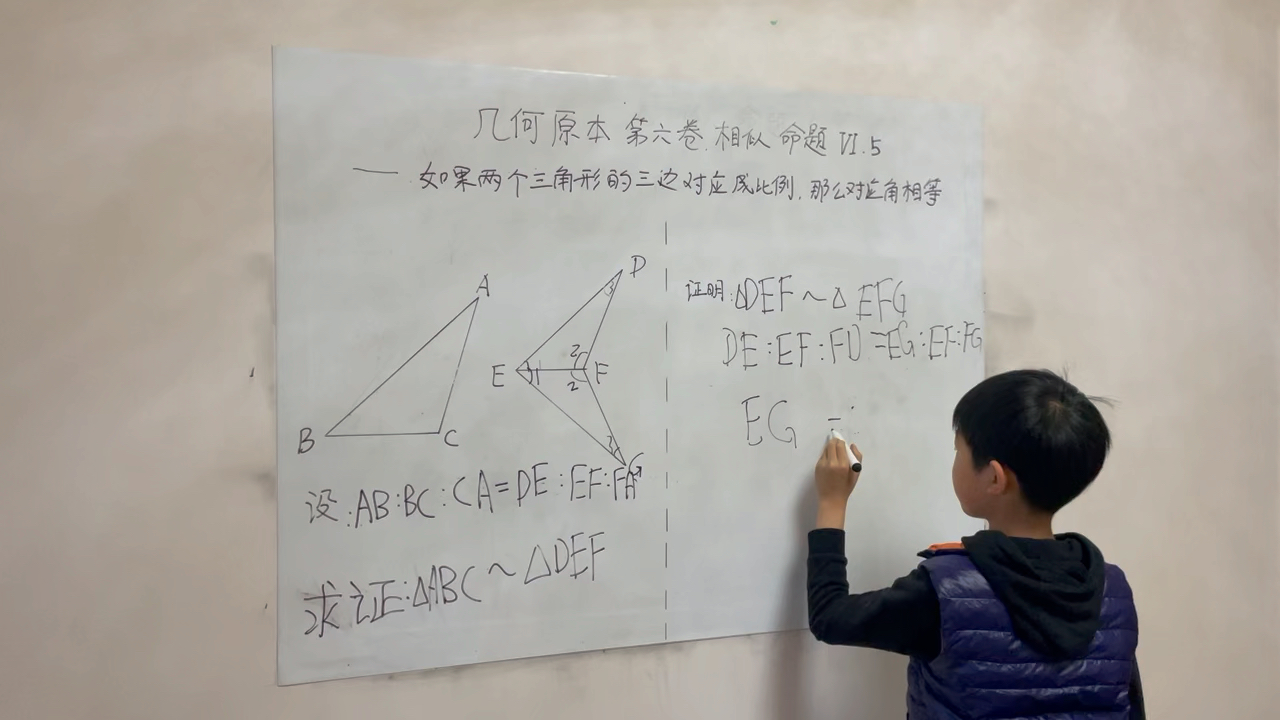 几何原本 第六卷.相似 命题 VI.5
—— 如果两个三角形的三边对应成比例,那么对应角相等
A
B
C
D
3
E
1
2
2
F
设:AB:BC:CA=DE:EF:FA
求证:△ABC~△DEF
证明:△DEF~△EFG
DE:EF:FD=EG:EF:FG
EG =